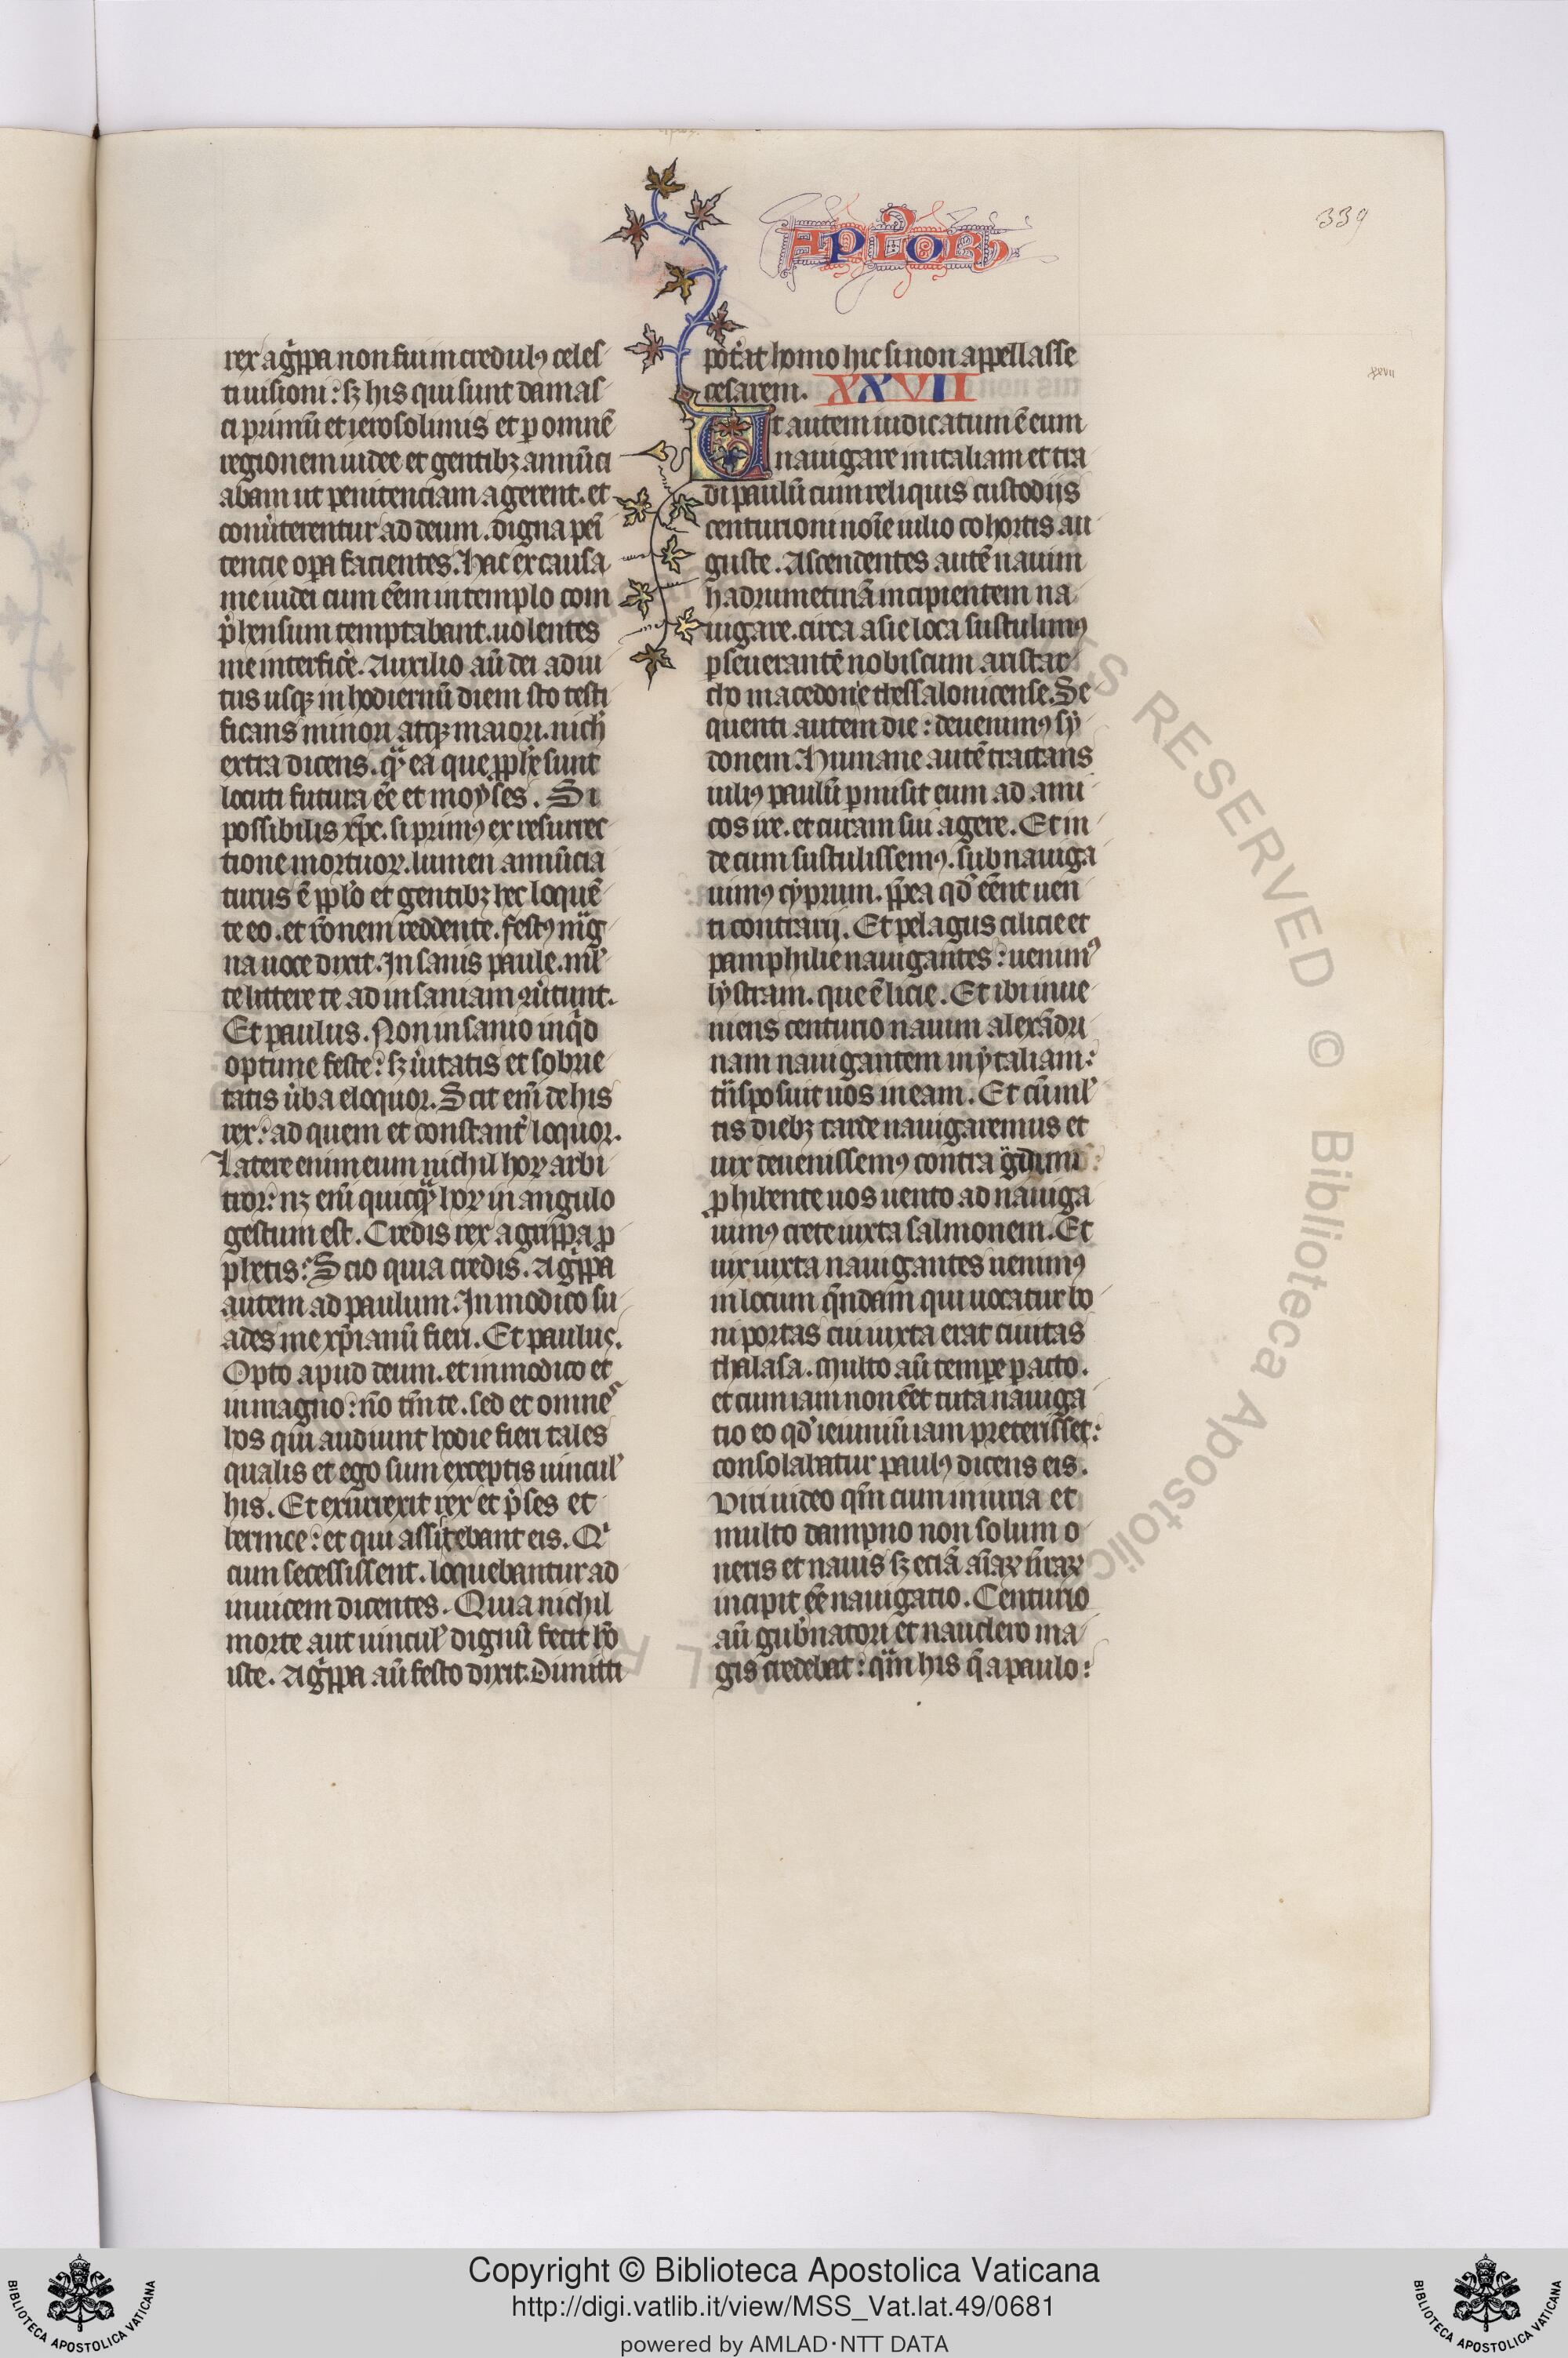 APLOR
339
rex ag̃ppa non fui incredulꝰ celes
ti uisioni: sꝫ his qui sunt damas
ci primũ et ierosolimis et ꝑ omnẽ
regionem iudee et gentibꝫ annũci
abam ut penitenciam agerent. et
conuͥterentur ad deum. digna peñ
tencie oꝑa facientes. Hac ex causa
me iudei cum eẽm in templo com
p̃hensum temptabant. uolentes
me interfic̃e. Auxilio aũ dei adiu
tus usqꝫ in hodiernũ diem sto testi
ficans minori atqꝫ maiori. nich̃
extra dicens. qͣ ea que ꝓph̃e sunt
locuti futura eẽ et moyses. Si
possibilis xp̃c. si primꝰ ex resurrec
tione mortuoꝝ. lumen annũcia
turus ẽ ppl̃o et gentibꝫ hec loquẽ
te eo. et rõnem reddente. festꝰ mͣg
na uoce dixit. Insanis paule. ml̃
te littere te ad insaniam ꝯũtunt.
Et paulus. Non insanio inqͥd
optime feste: sꝫ ũitatis et sobrie
tatis ũba eloquor. Scit enĩ de his
rex: ad quem et constant̃ loquor.
Latere enim eum nichil hoꝝ arbi
tror: nꝫ enĩ quicqͣ hoꝝ in angulo
gestum est. Credis rex agrippa ꝓ
phetis: Scio quia credis. Ag̃ppa
autem ad paulum. In modico su
ades me xp̃ianũ fieri. Et paulus.
Opto apud deum. et in modico et
in magno: nõ tm̃ te. sed et omnes
hos qui audiunt hodie fieri tales
qualis et ego sum exceptis uincul̃
his. Et exurrexit rex et p̃ses et
bernice: et qui assidebant eis. Qͥ
cum secessissent. loquebantur ad
inuicem dicentes. Quia nichil
morte aut uincul̃ dignũ fecit hõ
iste. Ag̃ppa aũ festo dixit. Dimitti
pot̃at homo hic si non appellasse
cesarem. XXVII
xxvii
Ut autem iudicatum ẽ eum
nauigare in italiam et tra
di paulũ cum reliquis custodiis
centurioni noĩe iulio cohortis au
guste. Ascendentes autẽ nauim
hadrumetinã incipientem na
uigare. circa asie loca sustulimꝰ
ꝑseuerantẽ nobiscum aristar
cho macedone thessalonicense. Se
quenti autem die: deuenimꝰ sy
donem. Humane autẽ tractans
iuliꝰ paulũ ꝑmisit eum ad ami
cos ire. et curam sui agere. Et in
de cum sustulissemꝰ. subnauiga
uimꝰ cyprum. ꝓpea qd̃ eẽnt uen
ti contrarij. Et pelagus cilicie et
pamphilie nauigantes: uenimꝰ
lystram. que ẽ licie. Et ibi inue
niens centurio nauim alexãdri
nam nauigantem in ytaliam:
tñsposuit nos in eam. Et cũ ml̃
tis diebꝫ tarde nauigaremus et
uix deuenissemꝰ contra gͥdum:
ꝓhibente nos uento adnauiga
uimꝰ crete iuxta salmonem. Et
uix iuxta nauigantes uenimꝰ
in locum q̃ndam qui uocatur bo
ni portus cui iuxta erat ciuitas
thalasa. Multo aũ temꝑe ꝑacto.
et cum iam non eẽt tuta nauiga
tio eo qd̃ ieiuniũ iam preterisset:
consolabatur paulꝰ dicens eis.
Viri uideo qm̃ cum iniuria et
multo dampno non solum o
neris et nauis sꝫ eciã añaꝝ ñraꝝ
incipit eẽ nauigatio. Centurio
aũ gub̃natori et nauclero ma
gis credebat: qͣm his q̃ a paulo:
Copyright © Biblioteca Apostolica Vaticana
http://digi.vatlib.it/view/MSS_Vat.lat.49/0681
powered by AMLAD·NTT DATA
BIBLIOTECA APOSTOLICA VATICANA
BIBLIOTECA APOSTOLICA VATICANA